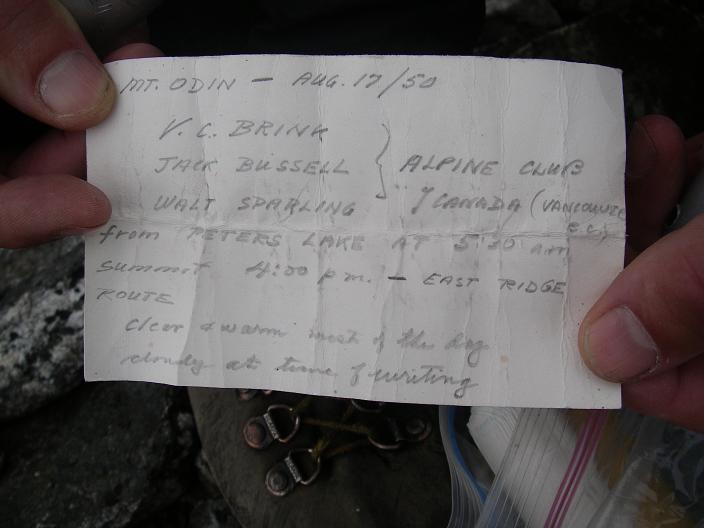 MT. ODIN — AUG. 17/50
V. C. BRINK
JACK BUSSELL } ALPINE CLUB
WALT SPARLING of CANADA (VANCOUVER B.C.)
from PETERS LAKE AT 5:30 a.m
summit 4:00 p.m. — EAST RIDGE
ROUTE
clear & warm most of the day
cloudy at time of writing